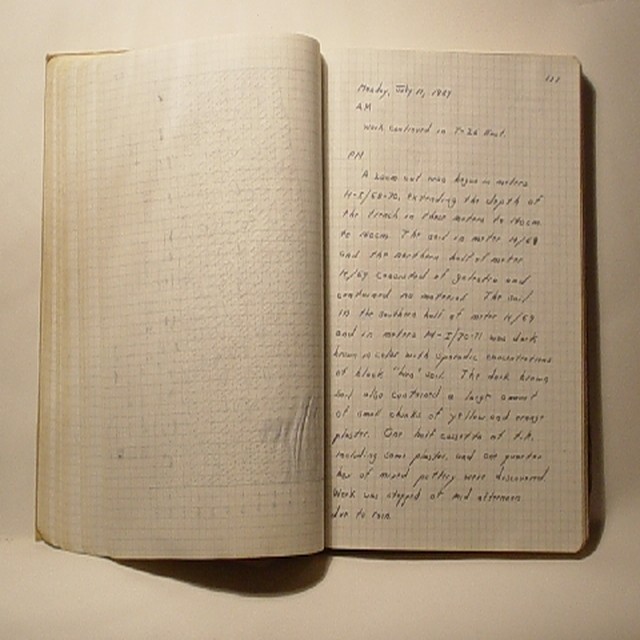 Monday, July 17, 1989
AM
Work continued in T-26 East.
PM
A 20cm cut was begun in meters
H-I/68-70, extending the depth of
the trench in these meters to 140cm
to 160cm. The soil in meter H/68
and the northern half of meter
H/69 consisted of galestro and
contained no material. The soil
in the southern half of meter H/69
and in meters H-I/70-71 was dark
brown in color with sporadic concentrations
of black "burn" soil. The dark brown
soil also contained a large amount
of small chunks of yellow and orange
plaster. One half cassetta of tile,
including some plaster, and one quarter
box of mixed pottery were discovered.
Work was stopped at mid afternoon
due to rain.